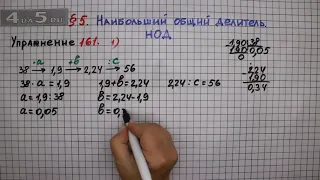 4 из 5.ru
§ 5. Наибольший общий делитель.
НОД
Упражнение 161. 1)
·а +в :с
38 → 1,9 → 2,24 → 56
38 · а = 1,9 1,9 + в = 2,24 2,24 : с = 56
а = 1,9 : 38 в = 2,24 - 1,9
а = 0,05 в = 0,
1,90 38
190 0,05
0
- 2,24
1,90
0,34